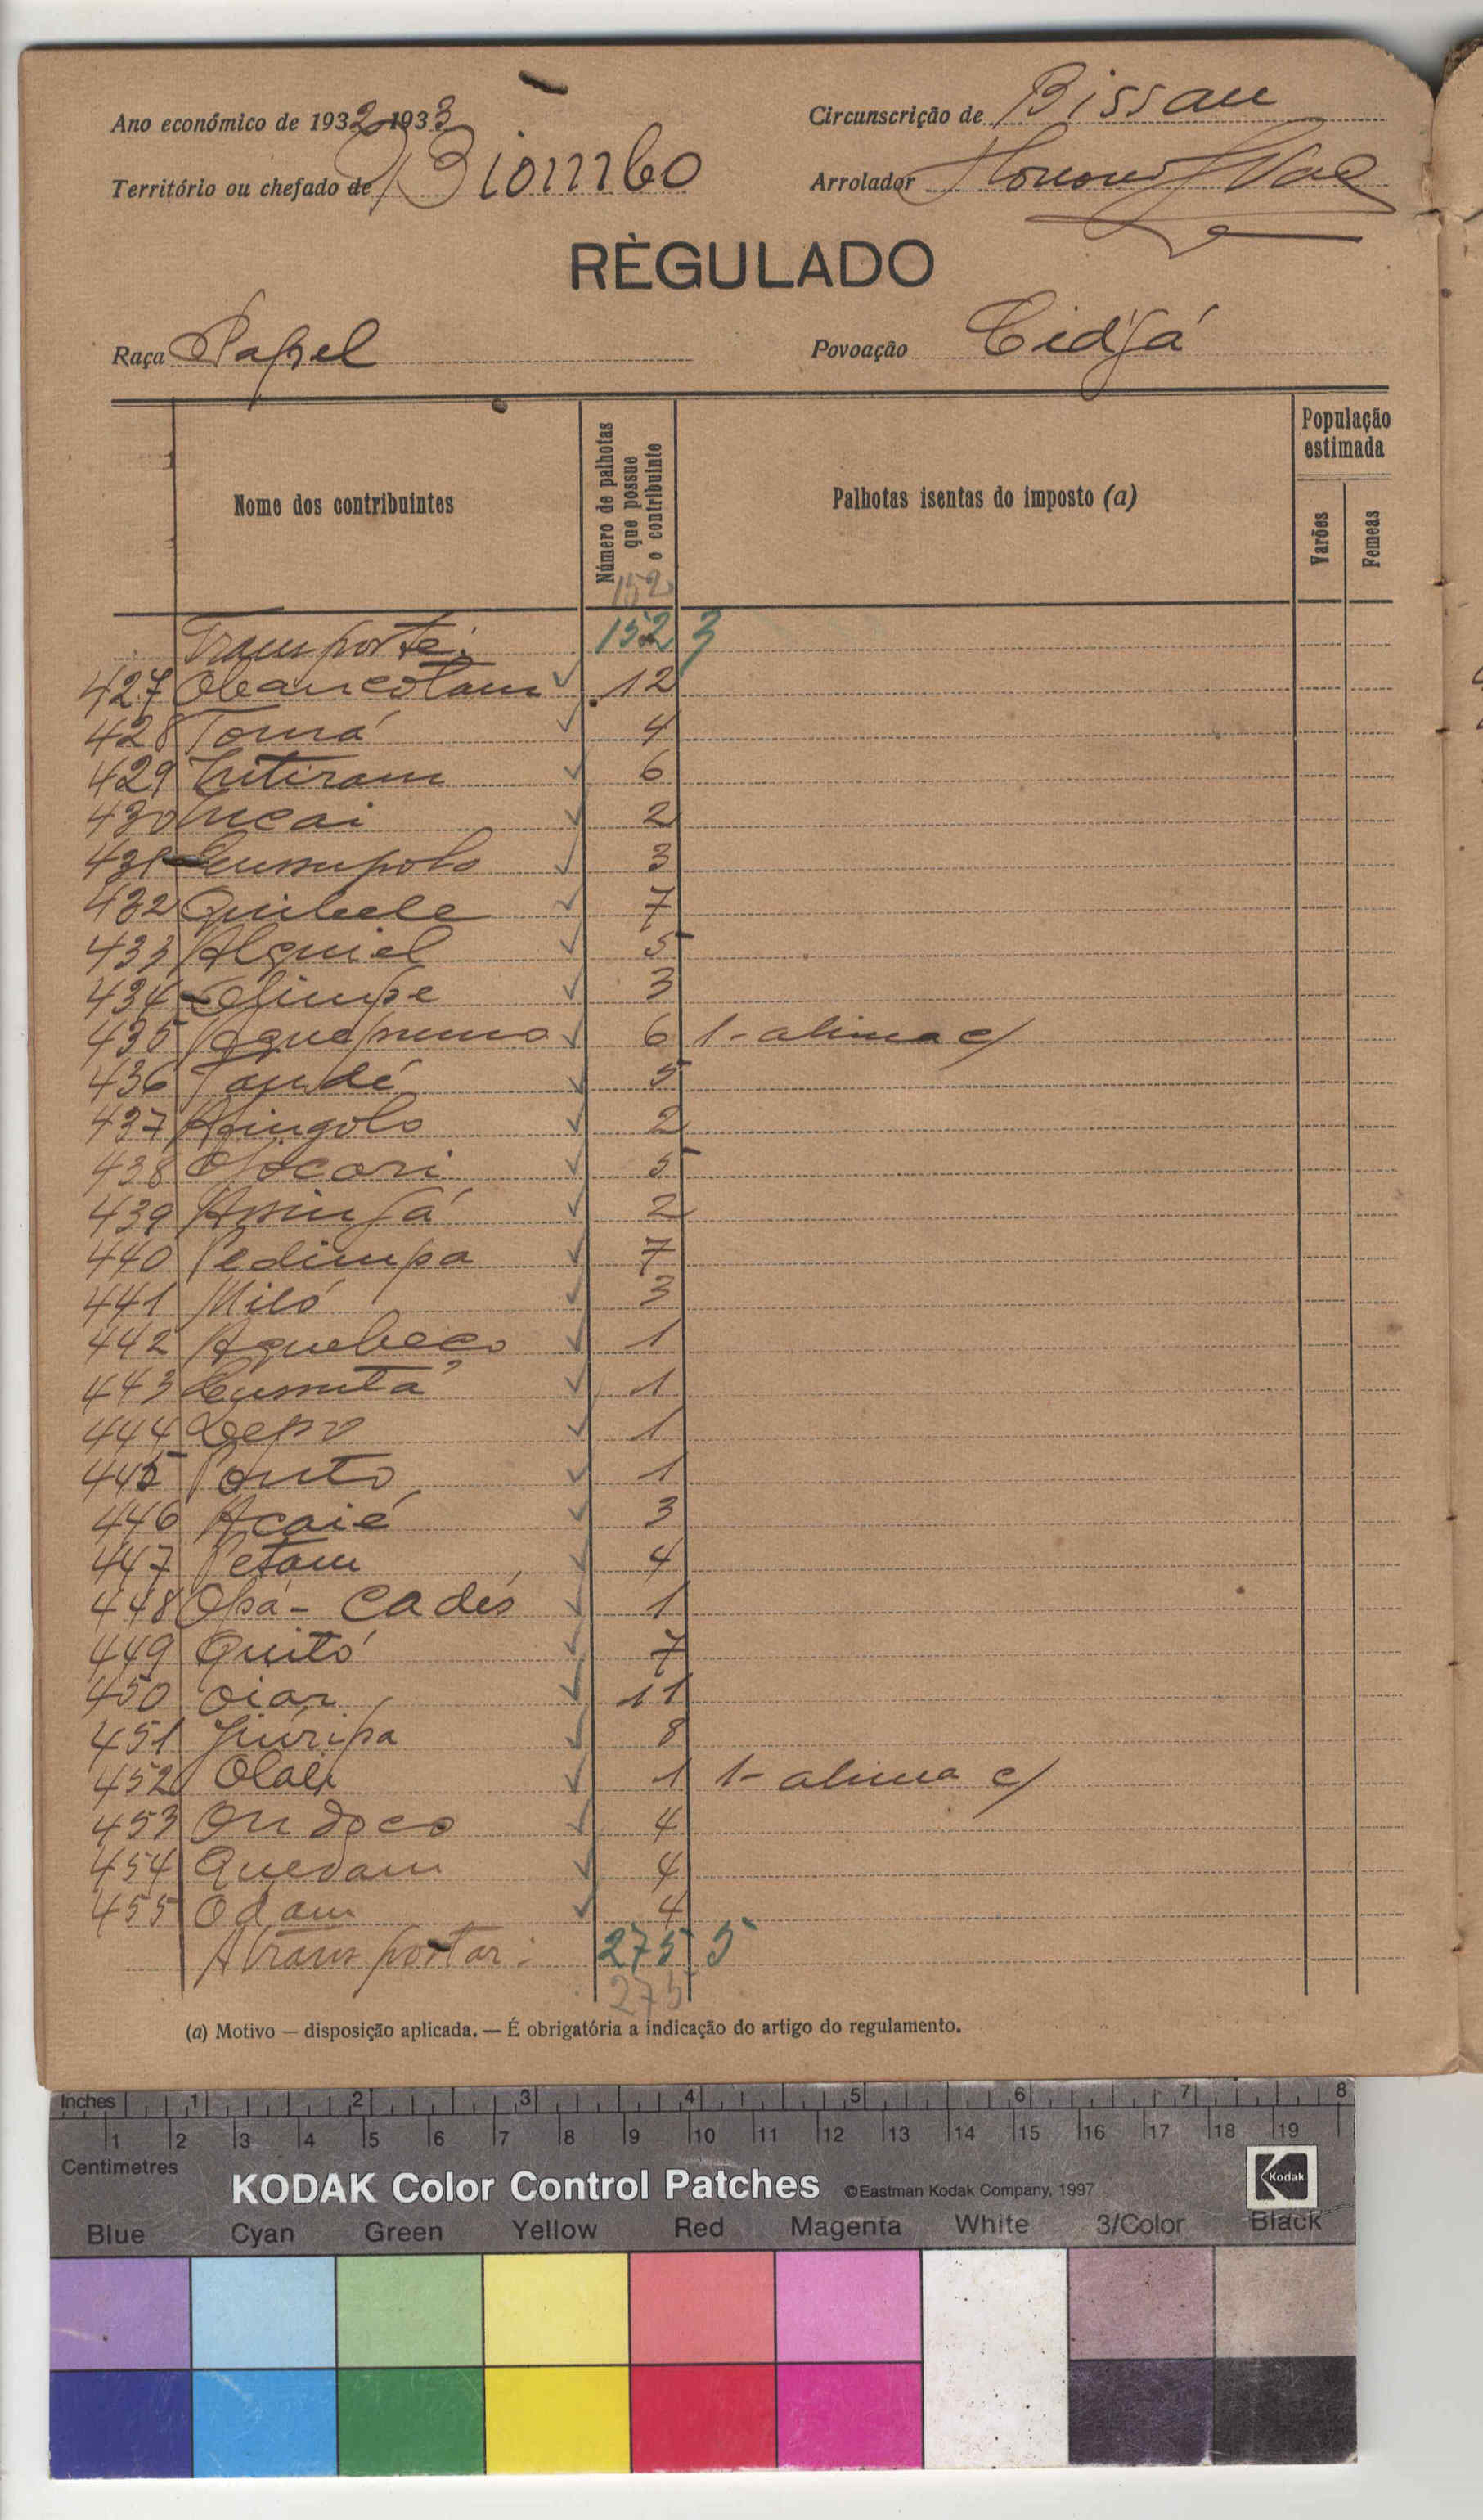 Ano económico de 1932-1933
Circunscrição de Bissau
Território ou chefado de Biombo
Arrolador
RÈGULADO
Raça Papel
Povoação Cidjá
Nome dos contribuintes
Número de palhotas que possue o contribuinte
Palhotas isentas do imposto (a)
População estimada
Varões
Femeas
152
Transporte: 152 3
427 12
428 Tomá 4
429 6
430 2
431 3
432 Quibele 7
433 Alquiel 5
434 3
435 6 1-
436 Tandé 5
437 Afingolo 2
438 5
439 2
440 Pedimpa 7
441 Miló 3
442 Aquebeco 1
443 1
444 1
445 Pouto 1
446 Acaié 3
447 Petam 4
448 Opá-Cadés 1
449 Quitó 7
450 Oiar 11
451 8
452 1 1-
453 Ondoco 4
454 Quedam 4
455 Odam 4
A transportar: 275 5
275
(a) Motivo — disposição aplicada. — É obrigatória a indicação do artigo do regulamento.
Inches 1 2 3 4 5 6 7 8
1 2 3 4 5 6 7 8 9 10 11 12 13 14 15 16 17 18 19
Centimetres
KODAK Color Control Patches ©Eastman Kodak Company, 1997 Kodak
Blue Cyan Green Yellow Red Magenta White 3/Color Black